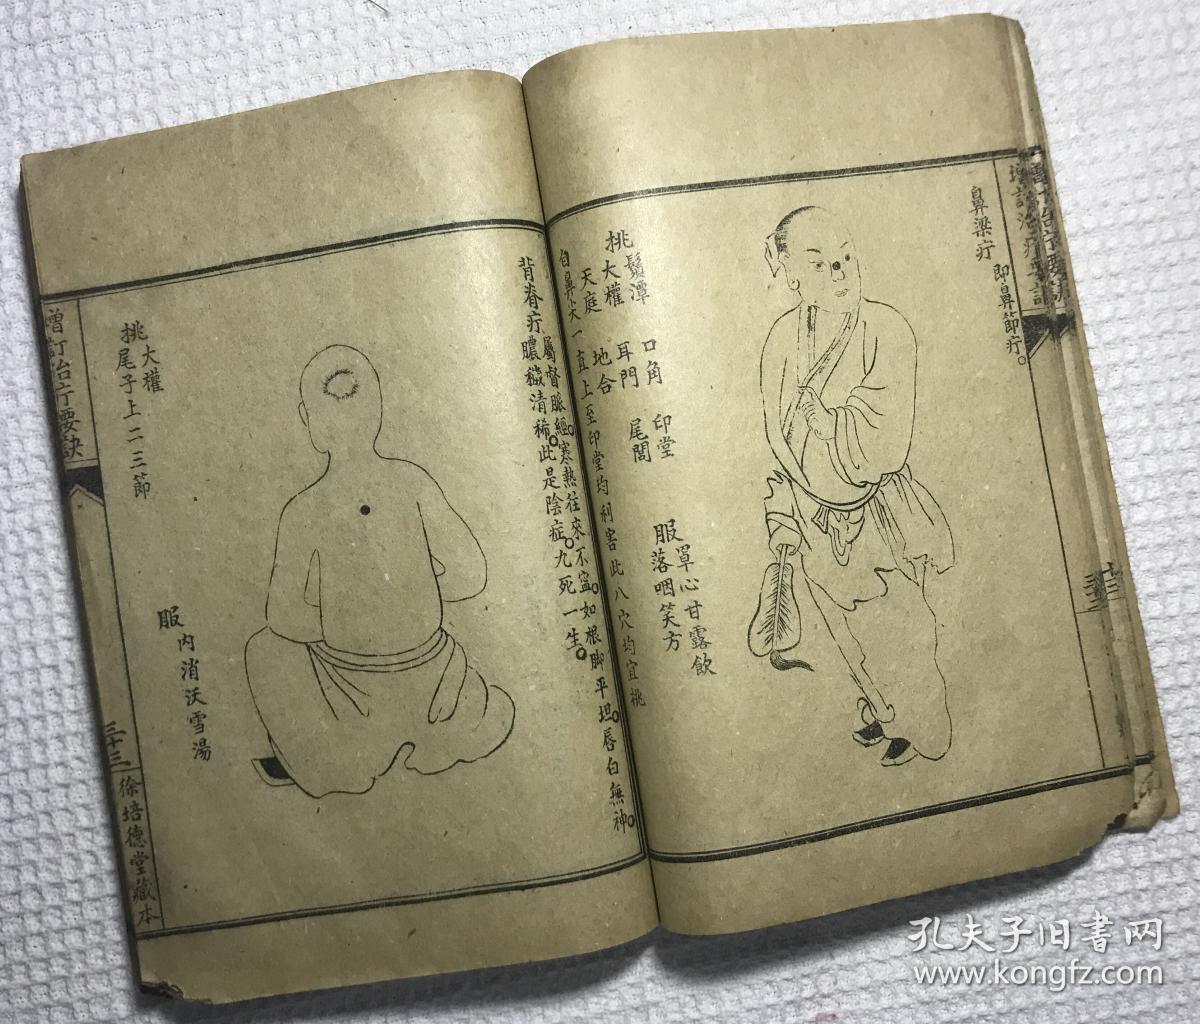 增訂治疔要訣
鼻梁疔 即鼻節疔。
挑
鬚潭 口角 印堂
大權 耳門 尾閭
天庭 地合
服
罩心甘露飲
落咽笑方
自鼻尖一直上至印堂均利害此八穴均宜挑
背脊疔
屬督脈經。寒熱往來不寍。如根脚平坦。唇白無神。
膿穢清稀。此是陰症。九死一生。
挑
大權
尾子上二三節
服
內消沃雪湯
增訂治疔要訣
三十三
徐培德堂藏本
孔夫子旧書网
www.kongfz.com